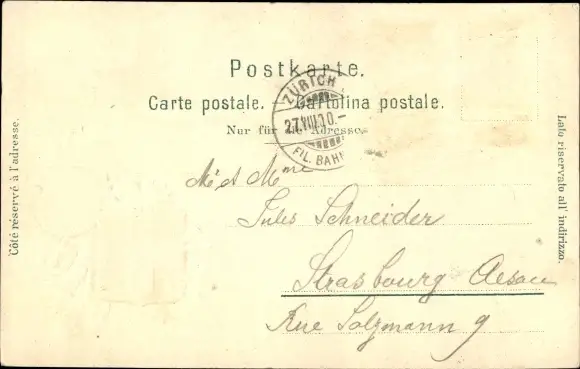 Postkarte.
Carte postale. — Cartolina postale.
Nur für die Adresse.
ZÜRICH
27.VIII.00.–
FIL. BAHN
Côté réservé à l'adresse.
Lato riservato all' indirizzo.
M. et Mme
Jules Schneider
Strasbourg
Rue Salzmann 9